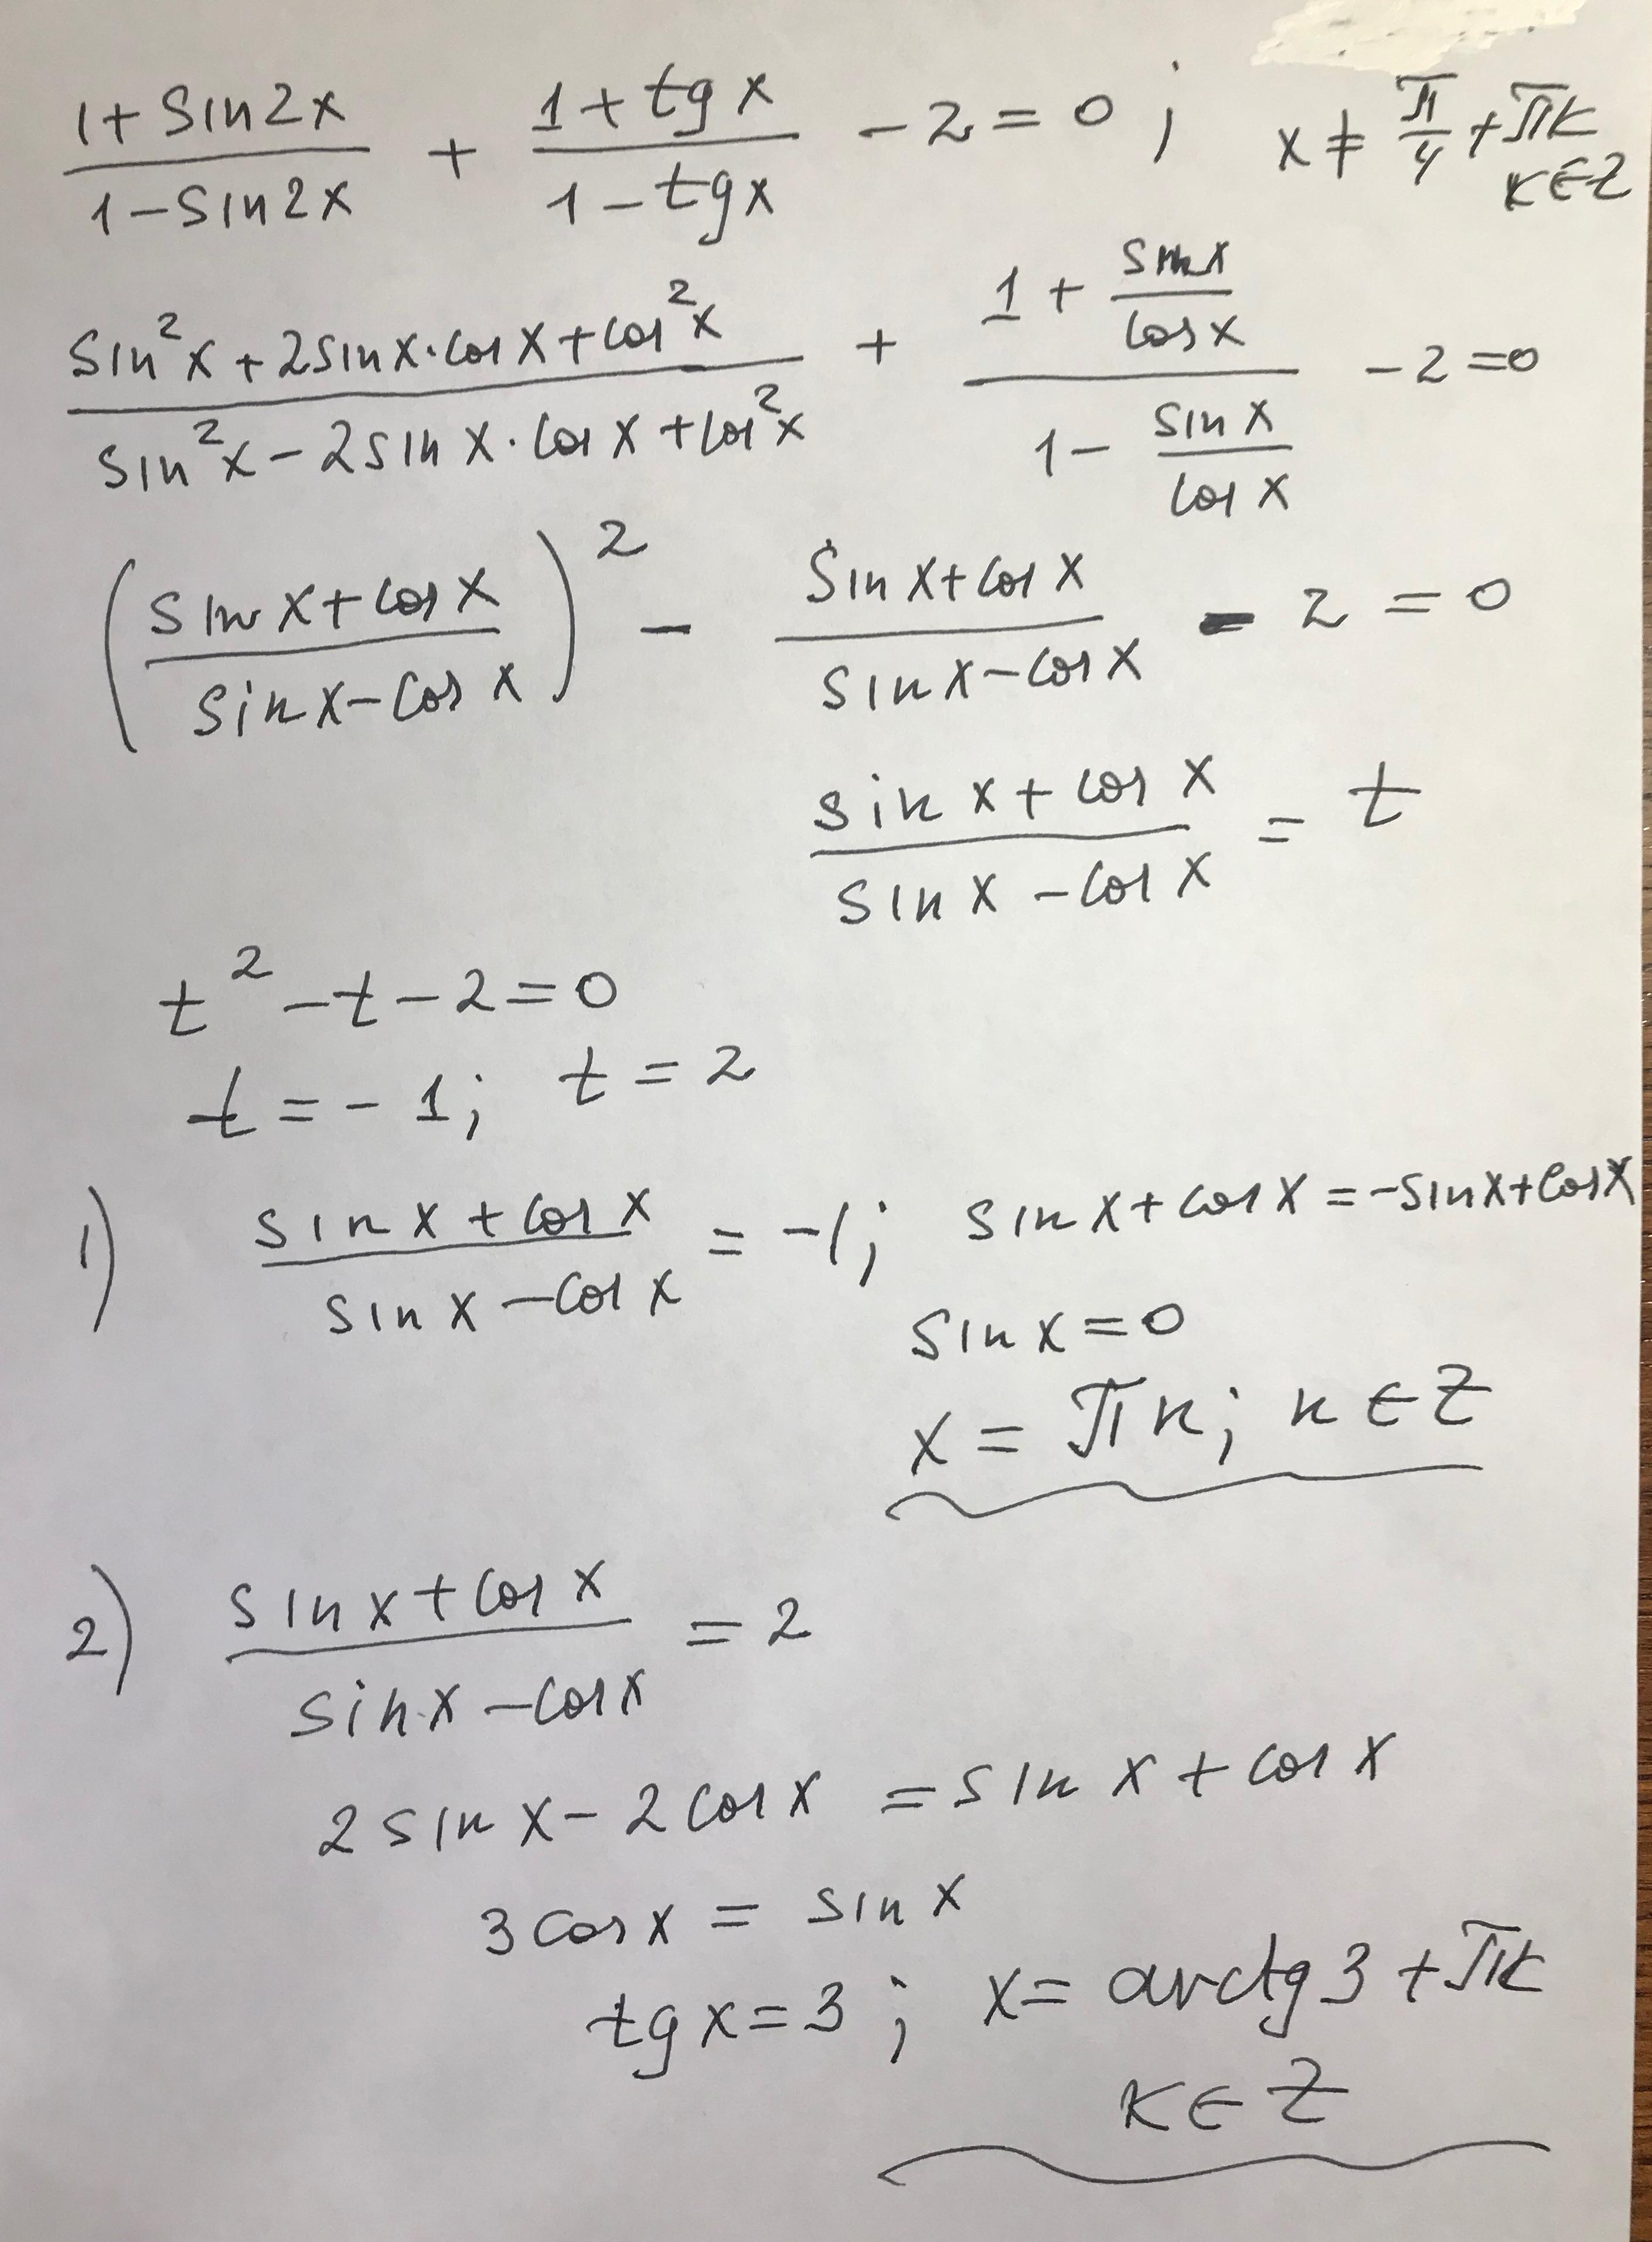 (1+sin2x)/(1-sin2x) + (1+tgx)/(1-tgx) -2=0; x≠π/4+πk
k∈Z
(sin²x+2sinx·cosx+cos²x)/(sin²x-2sinx·cosx+cos²x) + (1+sinx/cosx)/(1-sinx/cosx) -2=0
((sinx+cosx)/(sinx-cosx))² - (sinx+cosx)/(sinx-cosx) - 2=0
(sinx+cosx)/(sinx-cosx) = t
t²-t-2=0
t=-1; t=2
1) (sinx+cosx)/(sinx-cosx) = -1; sinx+cosx=-sinx+cosx
sinx=0
x=πn; n∈Z
2) (sinx+cosx)/(sinx-cosx) = 2
2sinx-2cosx=sinx+cosx
3cosx=sinx
tgx=3; x=arctg3+πk
k∈Z